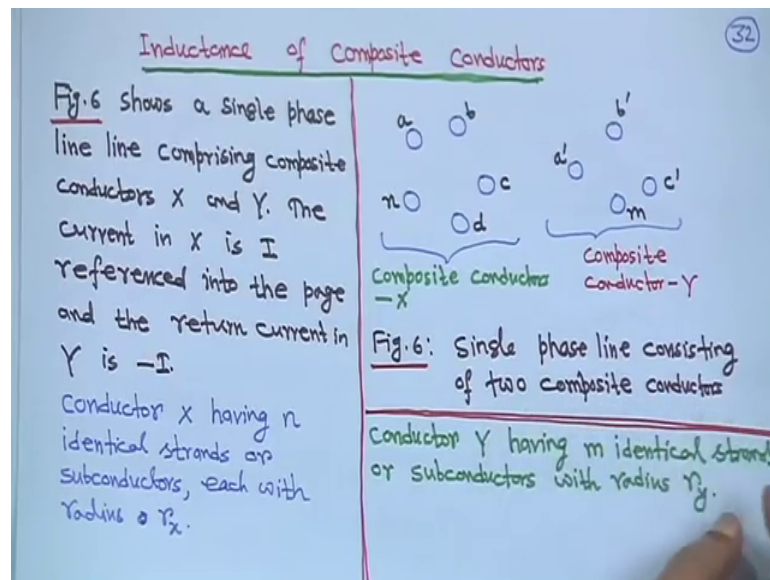 32
Inductance of Composite Conductors
Fig.6 shows a single phase
line line comprising composite
conductors X and Y. The
current in X is I
referenced into the page
and the return current in
Y is -I.
Conductor X having n
identical strands or
subconductors, each with
radius rx.
a
b
c
d
n
b'
a'
c'
m
Composite conductors
-X
Composite
Conductor-Y
Fig.6: Single phase line consisting
of two composite conductors
Conductor Y having m identical strands
or subconductors with radius ry.